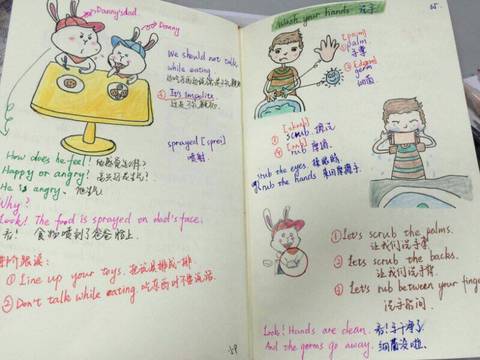 Danny'sdad
Danny
We should not talk
while eating.
It's impolite
sprayed [sprei]
喷射
How does he feel?
Happy or angry?
He is angry. 他生气
Why?
Look! The food is sprayed on dad's face.
看! 食物喷到了爸爸脸上.
① Line up your toys.
② Don't talk while eating.
Wash your hands 洗手
[pa:m]
palm
手掌
germ
细菌
scrub 擦洗
rub 摩擦
rub the eyes. 揉眼睛
rub the hands
① Let's scrub the palms.
让我们洗手掌
② Let's scrub the backs.
让我们洗手背
③ Let's rub between your finge
洗手指间.
Look! Hands are clean.
And the germs go away. 细菌没啦.